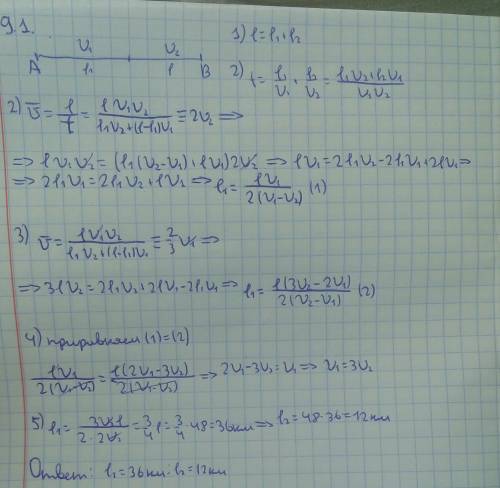 9.1.
V₁ V₂
A ℓ₁ ℓ B
1) ℓ=ℓ₁+ℓ₂
2) t=ℓ₁/V₁+ℓ₂/V₂=(ℓ₁V₂+ℓ₂V₁)/(V₁V₂)
2) V̅=ℓ/t=ℓV₁V₂/(ℓ₁V₂+(ℓ-ℓ₁)V₁)≡2V₂ ⇒
⇒ ℓV₁V₂=(ℓ₁(V₂-V₁)+ℓV₁)2V₂ ⇒ ℓV₁=2ℓ₁V₂-2ℓ₁V₁+2ℓV₁⇒
⇒ 2ℓ₁V₁=2ℓ₁V₂+ℓV₂ ⇒ ℓ₁=ℓV₁/(2(V₁-V₂)) (1)
3) V̅=ℓV₁V₂/(ℓ₁V₂+(ℓ-ℓ₁)V₁)≡2/3V₁ ⇒
⇒ 3ℓV₂=2ℓ₁V₂+2ℓV₁-2ℓ₁V₁ ⇒ ℓ₁=ℓ(3V₂-2V₁)/(2(V₂-V₁)) (2)
4) приравняем (1)=(2)
ℓV₁/(2(V₁-V₂))=ℓ(2V₁-3V₂)/(2(V₁-V₂)) ⇒ 2V₁-3V₂=V₁⇒ V₁=3V₂
5) ℓ₁=3V₂ℓ/(2·2V₂)=3/4ℓ=3/4·48=36км⇒ ℓ₂=48-36=12км
Ответ: ℓ₁=36км; ℓ₂=12км